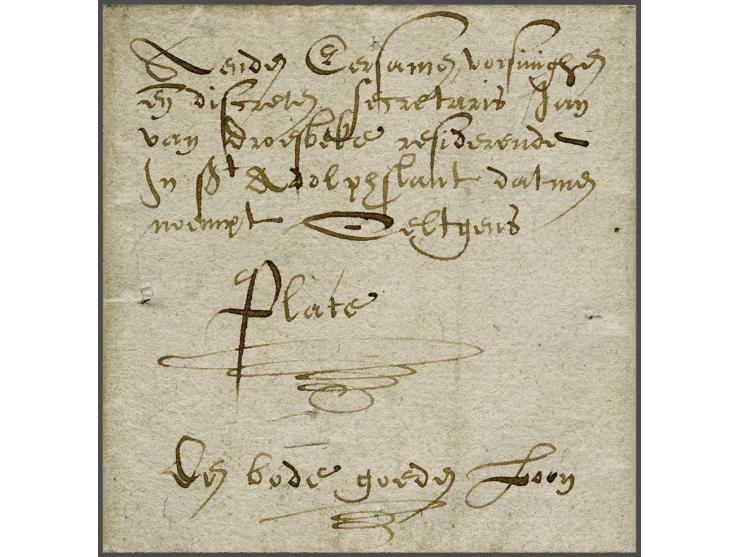 Aenden Eersamen, vorsinighen
en discreten secretaris Jan
van droesbeke residerende
In st Adolphslant datmen
noempt Deltgens
Plate
Den bode goeden loon